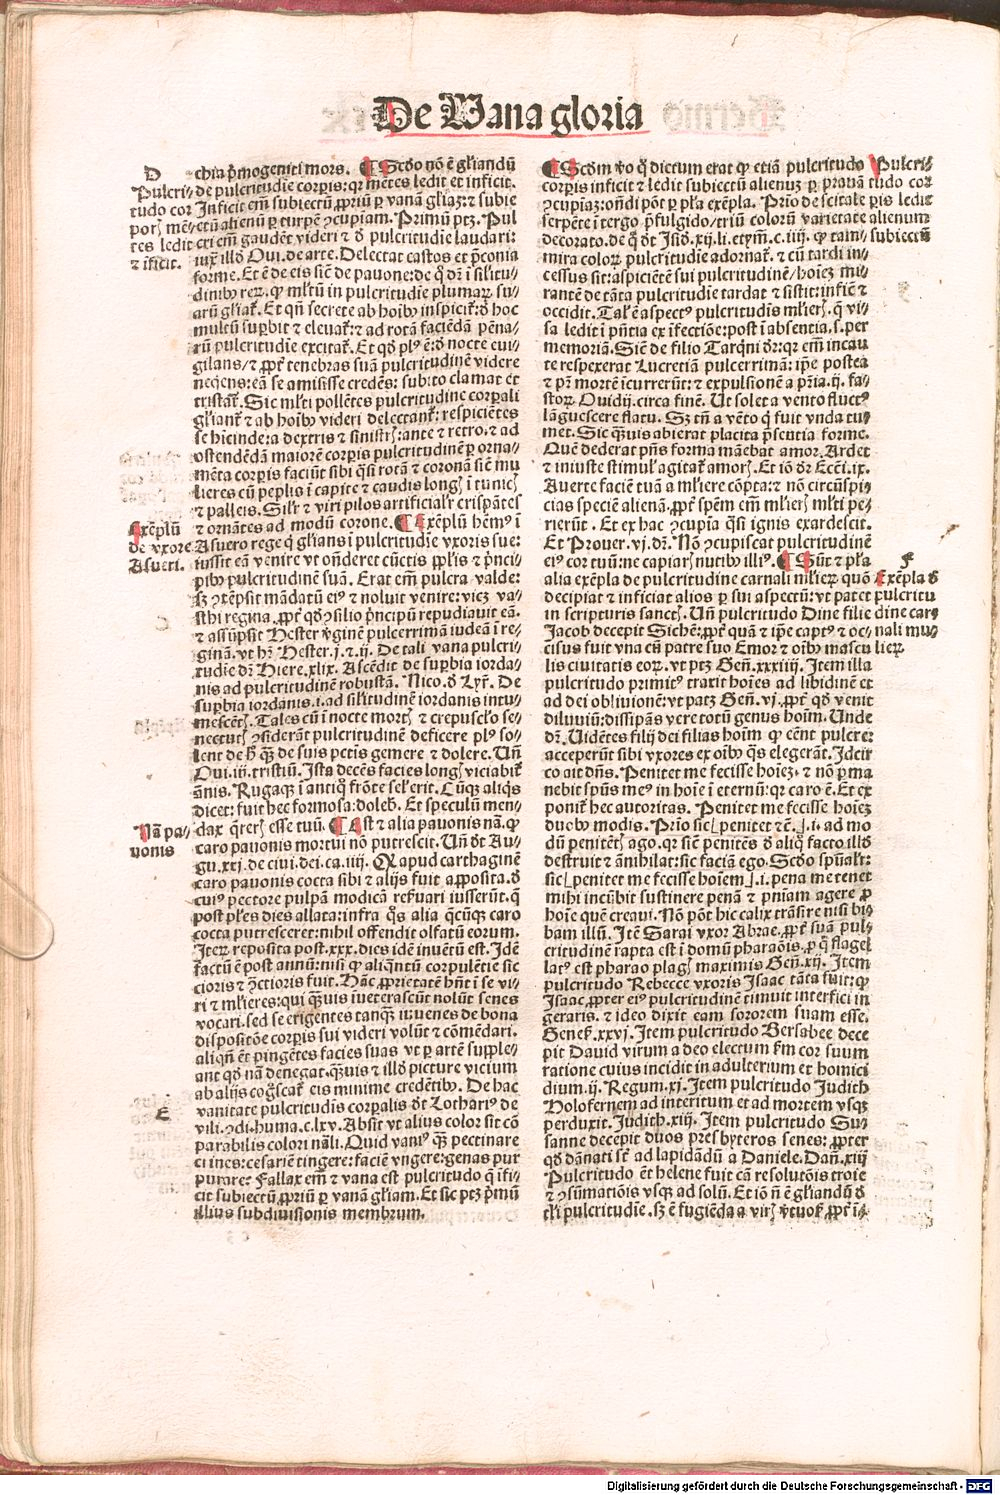 De Uana gloria
D
Pulcri⸗
tudo cor
porꝭ mē⸗
tes ledit
⁊ īficit.
chia p̄mogeniti mors. ¶ Scd̄o nō ē gl̄iandū
de pulcritudīe corꝑis: qꝛ mētes ledit et inficit.
Inficit em̄ subiectū ꝓpriū ꝑ vanā gl̄iaꝫ: ⁊ subie
ctū alienū ꝑ turpē ꝯcupiam. Primū ptꝫ. Pul
cri em̄ gaudēt videri ⁊ ꝺ pulcritudīe laudari:
iuxͣ illḋ Oui. de arte. Delectat castos et p̄conia
forme. Et ē de eis siē de pauone: de qͦ dꝛ ī sil̄itu⸗
dinibꝰ reꝝ. ꝙ ml̄tū in pulcritudīe plumaꝝ su⸗
arū gl̄iat᷑. Et qn̄ secrete ab hoībꝰ inspicit᷑: ꝺ hoc
multū suꝑbit ⁊ eleuat᷑: ⁊ ad rotā faciēdā pēna⸗
rū pulcritudīe excitat᷑. Et qḋ plꝰ ē: ꝺ nocte eui⸗
gilans, ⁊ ꝓpt᷑ tenebras suā pulcritudinē videre
neqͥens: eā se amisisse credēs: subito clamat et
tristat᷑. Sic ml̄ti pollētes pulcritudine corꝑali
gl̄iant᷑ ⁊ ab hoībꝰ videri delectant᷑: respiciētes
se hicinde: a dextris ⁊ sinistrꝭ: ante ⁊ retro. ⁊ ad
ostendēdā maiorē corꝑis pulcritudinē ꝑ orna⸗
mēta corꝑis faciūt sibi qͣsi rotā ⁊ coronā siē mu
lieres cū peplis ī capite ⁊ caudis longꝭ ī tunicꝭ
⁊ palleis. Sil̄r ⁊ viri pilos artificialr̄ crispātes
⁊ ornātes ad modū corone. ¶ Exēplū hēmꝰ ī
Exēplū
de vxore
Asueri.
Asuero rege qͥ gl̄ians ī pulcritudīe vxoris sue:
iussit eā venire vt on̄deret cūctis pp̄lis ⁊ p̄nci⸗
pibꝰ pulcritudinē suā. Erat em̄ pulcra valde:
sꝫ ꝯtēpsit mādatū eiꝰ ⁊ noluit venire: vicꝫ va⸗
sthi regina. ꝓpt᷑ qḋ ꝯsilio p̄ncipū repudiauit eā.
⁊ assūpsit Hester v̓ginē pulcerrimā iudeā ī re⸗
ginā. vt hꝛ Hester. j. ⁊ ij. De tali vana pulcri⸗
tudīe dꝛ Hiere. xlix. Ascēdit de suꝑbia iorda⸗
nis ad pulcritudinē robustā. Nico. ꝺ Lyr̄. De
suꝑbia iordanis. i. ad sil̄itudinē iordanis intu⸗
mescētꝭ. Tales cū ī nocte mortꝭ ⁊ crepuscl̓o se⸗
nectutꝭ ꝯsiderāt pulcritudinē deficere plꝰ so⸗
lent de h̓ qͣꝫ de suis pctis gemere ⁊ dolere. Un̄
Oui. iij. tristiū. Ista decēs facies longꝭ viciabit᷑
ānis. Rugaqꝫ ī antiqͣ frōte sel̄ erit. Cūqꝫ aliqͥs
dicet: fuit hec formosa: dolebꝭ. Et speculū men⸗
Na᷑ pa⸗
uonis
dax qͣrerꝭ esse tuū. ¶ Est ⁊ alia pauonis na᷑. ꝙ
caro pauonis mortui nō putrescit. Un̄ ꝺt Au⸗
gu. xxj. de ciui. dei. ca. iiij. Q̄ apud carthaginē
caro pauonis cocta sibi ⁊ alijs fuit aꝓposita. ꝺ
cuiꝰ pectore pulpā modicā ref̓uari iusserūt. qͣ
post pl̓es dies allata: infra qͦs alia qͣcūqꝫ caro
cocta putresceret: nihil offendit olfatū eorum.
Iteꝝ reposita post. xxx. dies idē inuētū est. Idē
factū ē post annū: nisi ꝙ aliqͣntū corpulētie sic
cioris ⁊ ꝯtctioris fuit. Hāc ꝓprietatē hn̄t ī se vi⸗
ri ⁊ ml̓ieres: qui qͣꝫuis īueterascūt nolūt senes
vocari. sed se erigentes tanqͣꝫ iuuenes de bona
dispositōe corꝑis sui videri volūt ⁊ cōmēdari.
aliqn̄ et pingētes facies suas vt ꝑ artē supple⸗
E
ant qḋ nā denegat. qͣꝫuis ⁊ illḋ picture vicium
ab alijs cogͦscat᷑ eis minime credētibꝰ. De hac
vanitate pulcritudīs corꝑalis ꝺt Lothariꝰ de
vili. ꝯdi. huma. c. lxv. Absit vt aliꝰ color sit cō
parabilis colori nāli. Quid vaniꝰ qͣꝫ pectinare
crines: cesariē tingere: faciē vngere: genas pur
purare? Fallax em̄ ⁊ vana est pulcritudo qͥ īfi⸗
cit subiectū ꝓpriū ꝑ vanā gl̄iam. Et sic ptꝫ p̄mū
illius subdiuisionis membrum.
¶ Scd̄m vo̓ qḋ dictum erat ꝙ etiā pulcritudo
corꝑis inficit ⁊ ledit subiectū alienuꝫ ꝑ prauā
ꝯcupiaꝫ: on̄di pōt ꝑ pl̓a exēpla. Prīo de scitale
serpēte ī tergo p̄fulgido, triū colorū varietate
decorato. de qͦ ꝺt Isid̓. xij. li. etym̄. c. iiij. ꝙ tam⸗
Pulcri⸗
tudo cor
ꝑis ledit
alienum
subiectū
mira coloꝝ pulcritudīe adornat᷑. ⁊ cū tardi in⸗
cessus sit: aspiciētē sui pulcritudinē, hoīeꝫ mi⸗
rantē de tāta pulcritudīe tardat ⁊ sistit: infiē ⁊
occidit. Tal̓ ē aspectꝰ pulcritudīs ml̓ierꝭ. qͣ vi⸗
sa ledit ī pn̄tia ex īfectiōe: post ī absentia. s. per
memoriā. Siē de filio Tarqͥni ꝺꝛ: qꝛ em̄ incau
te respexerat Lucretiā pulcerrimā: ip̄e postea
⁊ pꝛ mortē īcurrerūt: ⁊ expulsionē a pr̄ia. ij. fa⸗
stoꝝ. Ouidij. circa finē. Ut solet a vento fluctꝰ
lāguescere flatu. Sꝫ tn̄ a vēto qͥ fuit vnda tu⸗
met. Sic qͣꝫuis abierat placita p̄sentia forme.
Quē dederat pn̄s forma manebat amor. Ardet
⁊ iniuste stimul̓ agitat᷑ amorꝭ. Et iō ꝺꝛ Ecci. ix.
Auerte faciē tuā a ml̓iere cōpta: ⁊ nō circūspi⸗
cias speciē alienā. ꝓpt᷑ spēm em̄ ml̓ierꝭ ml̓ti pe⸗
rierūt. Et ex hac ꝯcupia qͣsi ignis exardescit.
Et Prouer. vj. dꝛ. Nō ꝯcupiscat pulcritudinē
eiꝰ cor tuū: ne capiarꝭ nutibꝰ illiꝰ. ¶ Sūt ⁊ pl̓a
F
Exēpla ꝺ
pulcritu
dine car⸗
nali mu⸗
lieꝝ
alia exēpla de pulcritudine carnali ml̓ieꝝ quō
decipiat ⁊ inficiat alios ꝑ sui aspectū: vt patet
in scripturis sanctꝭ. Un̄ pulcritudo Dine filie
Jacob decepit Sichē: ꝓpt᷑ quā ⁊ ip̄e captꝰ ⁊ oc⸗
cisus fuit vna cū patre suo Emor ⁊ oībꝰ mascu
lis ciuitatis eoꝝ. vt ptꝫ Gen̄. xxxiiij. Item illa
pulcritudo primitꝰ traxit hoīes ad libidinē et
ad dei obliuionē: vt patꝫ Gen̄. vj. ꝓpt᷑ qḋ venit
diluuiū: dissipās vere totū genus hoīm. Unde
dꝛ. Uidētes filij dei filias hoīm ꝙ cēnt pulcre:
acceperūt sibi vxores ex oībꝰ qͣs elegerāt. Idcir
co ait dn̄s. Penitet me fecisse hoīeꝫ. ⁊ nō ꝑma
nebit spūs meꝰ in hoīe ī eternū: qꝛ caro ē. Et ex
ponit᷑ hec autoritas. Penitet me fecisse hoīeꝫ
duobꝰ modis. Prīo sic penitet ⁊ē. i. ad mo
dū penitētꝭ ago. qꝛ siē penitēs ꝺ aliqͦ facto illḋ
destruit ⁊ ānihilat: sic faciā ego. Scd̄o spūalr̄:
sic penitet me fecisse hoīem. i. pena me tenet
mihi incūbit sustinere penā ⁊ pn̄iam agere ꝓ
hoīe quē creaui. Nō pōt hic calix trāsire nisi bi⸗
bam illū. Itē Sarai vxor Abrae. ꝓpt᷑ suā pul⸗
critudinē rapta est ī domū pharaōis. ꝑ qͣ flagel
latꝰ est pharao plagꝭ maximis Gen̄. xij. Item
pulcritudo Rebecce vxoris Isaac tāta fuit: ꝙ
Isaac ꝓpter eiꝰ pulcritudinē timuit interfici in
geraris. ⁊ ideo dixit eam sororem suam esse.
Genes. xxvj. Item pulcritudo Bersabee dece
pit Dauid virum a deo electum km̄ cor suum
ratione cuius incidit in adulterium et homici
dium. ij. Regum. xj. Item pulcritudo Judith
Holofernem ad interitum et ad mortem vsqꝫ
perduxit. Judith. xiij. Item pulcritudo Su⸗
sanne decepit duos presbyteros senes: ꝓpter
qḋ dānati st̄ ad lapidādū a Daniele. Dan̄. xiij
Pulcritudo et̄ helene fuit cā resolutōis troie
⁊ ꝯsūmatiōis vsqꝫ ad solū. Et iō n̄ ē gl̄iandū ꝺ
tl̓i pulcritudīe. sꝫ ē fugiēda a virꝭ v̓tuos᷑. ꝓpt᷑ is⸗
Digitalisierung gefördert durch die Deutsche Forschungsgemeinschaft - DFG